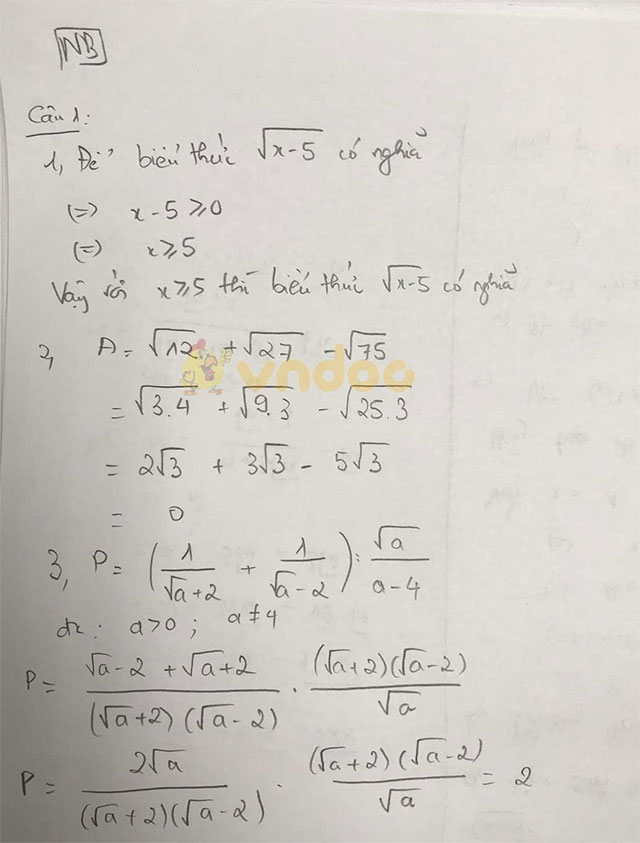 NB
Câu 1:
1, Để biểu thức √(x-5) có nghĩa
(=) x-5 ≥ 0
(=) x ≥ 5
Vậy với x ≥ 5 thì biểu thức √(x-5) có nghĩa
2, A = √12 + √27 - √75
= √(3.4) + √(9.3) - √(25.3)
= 2√3 + 3√3 - 5√3
= 0
3, P = (1/(√a+2) + 1/(√a-2)) : √a/(a-4)
đk: a>0 ; a≠4
P = (√a-2 + √a+2)/((√a+2)(√a-2)) . ((√a+2)(√a-2))/√a
P = 2√a/((√a+2)(√a-2)) . ((√a+2)(√a-2))/√a = 2
vndoc